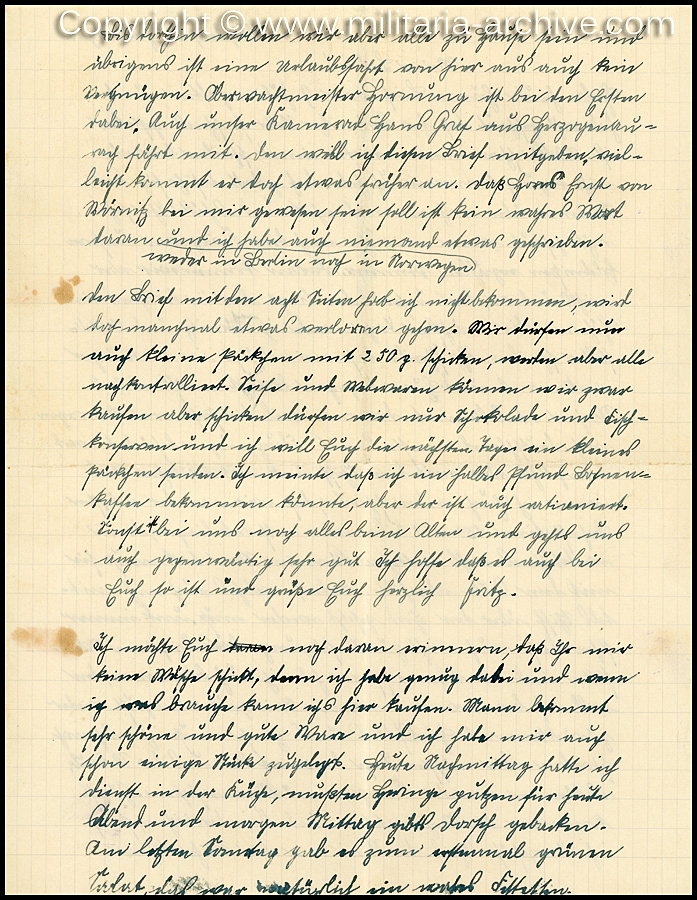 Copyright © www.militaria-archive.com
Bis dorthin wollen wir aber alle zu Hause sein und
übrigens ist eine Urlaubsfahrt von hier aus auch kein
Vergnügen. Oberwachtmeister Hornung ist bei den Ersten
dabei. Auch unser Kamerad Hans Graf aus Herzogenau-
rach fährt mit. Den will ich diesen Brief mitgeben, viel-
leicht kommt er doch etwas früher an. Daß Ernst von
Wörnitz bei mir gewesen sein soll ist kein wahres Wort
daran und ich habe auch niemand etwas geschrieben.
weder in Berlin noch in Norwegen
Den Brief mit den acht Seiten hab ich nicht bekommen, wird
doch manchmal etwas verloren gehen. Wir dürfen nun
auch kleine Päckchen mit 250 g. schicken, werden aber alle
nachkontrolliert. Seife und Wollwaren können wir zwar
kaufen aber schicken dürfen wir nur Schokolade und Fisch-
konserven und ich will Euch die nächsten Tage ein kleines
Päckchen senden. Ich meinte daß ich ein halbes Pfund Bohnen-
kaffee bekommen könnte, aber der ist auch rationiert.
Sonst bei uns noch alles beim Alten und gehts uns
auch gegenwärtig sehr gut Ich hoffe daß es auch bei
Euch so ist und grüße Euch herzlich Fritz.
Ich möchte Euch noch daran erinnern, daß Ihr mir
keine Wäsche schickt, denn ich habe genug dabei und wenn
ich was brauche kann ich's hier kaufen. Mann bekommt
sehr schöne und gute Ware und ich habe mir auch
schon einige Stücke zugelegt. Heute Nachmittag hatte ich
Dienst in der Küche, mußten Heringe putzen für heute
Abend und morgen Mittag gibts Dorsch gebacken.
Am letzten Sonntag gab es zum erstenmal grünen
Salat, das war natürlich ein wahres Festessen.